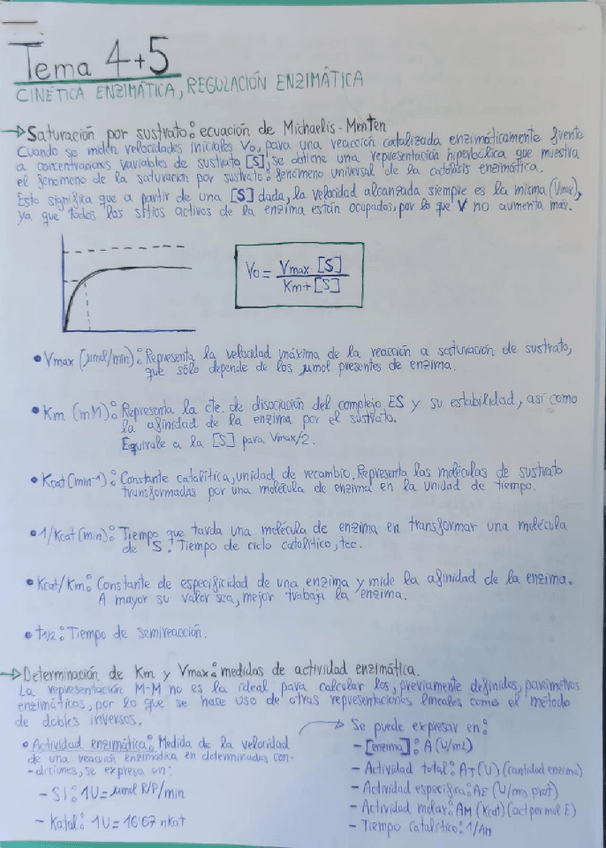 Tema 4+5
CINÉTICA ENZIMÁTICA, REGULACIÓN ENZIMÁTICA
→ Saturación por sustrato: ecuación de Michaelis-Menten
Cuando se miden velocidades iniciales Vo, para una reacción catalizada enzimáticamente frente
a concentraciones variables de sustrato [S], se obtiene una representación hiperbólica que muestra
el fenómeno de la saturación por sustrato: fenómeno universal de la catálisis enzimática.
Esto significa que a partir de una [S] dada, la velocidad alcanzada siempre es la misma (Vmax),
ya que todos los sitios activos de la enzima están ocupados, por lo que V no aumenta más.
Vo = Vmax · [S] / Km + [S]
• Vmax (μmol/min): Representa la velocidad máxima de la reacción a saturación de sustrato,
que sólo depende de los μmol presentes de enzima.
• Km (mM): Representa la cte. de disociación del complejo ES y su estabilidad, así como
la afinidad de la enzima por el sustrato.
Equivale a la [S] para Vmax/2.
• Kcat (min-1): Constante catalítica, unidad de recambio. Representa las moléculas de sustrato
transformadas por una molécula de enzima en la unidad de tiempo.
• 1/Kcat (min): Tiempo que tarda una molécula de enzima en transformar una molécula
de S. Tiempo de ciclo catalítico, tcc.
• Kcat/Km: Constante de especificidad de una enzima y mide la afinidad de la enzima.
A mayor su valor sea, mejor trabaja la enzima.
• t1/2: Tiempo de semireacción.
→ Determinación de Km y Vmax: medidas de actividad enzimática.
La representación M-M no es la ideal para calcular los, previamente definidos, parámetros
enzimáticos, por lo que se hace uso de otras representaciones lineales como el método
de dobles inversos.
• Actividad enzimática: Medida de la velocidad
de una reacción enzimática en determinadas con-
-diciones, se expresa en:
- SI: 1U = μmol R/P/min
- Katal: 1U = 16'67 nKat
→ Se puede expresar en:
- [enzima]: A (U/mL)
- Actividad total: AT (U) (cantidad enzima)
- Actividad específica: AE (U/mg prot)
- Actividad molar: AM (Kcat) (act por mol E)
- Tiempo catalítico: 1/AM